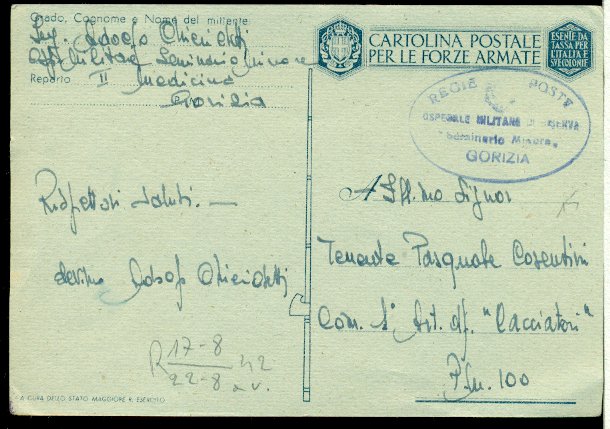 Grado, Cognome e Nome del mittente
Serg. Adolfo Chierichetti
Osp. Militare Seminario Minore
Reparto II Medicina
Gorizia
CARTOLINA POSTALE
PER LE FORZE ARMATE
ESENTE DA
TASSA PER
L'ITALIA E
SVE COLONIE
REGIE POSTE
OSPEDALE MILITARE DI RISERVA
"Seminario Minore"
GORIZIA
Rispettosi saluti. —
dev.mo Adolfo Chierichetti
R 17-8
22-8 42
a.v.
A Ill.mo Signor
Tenente Pasquale Cosentini
Com. 1ª Art. df. "Cacciatori"
P.M. 100
A CURA DELLO STATO MAGGIORE R. ESERCITO